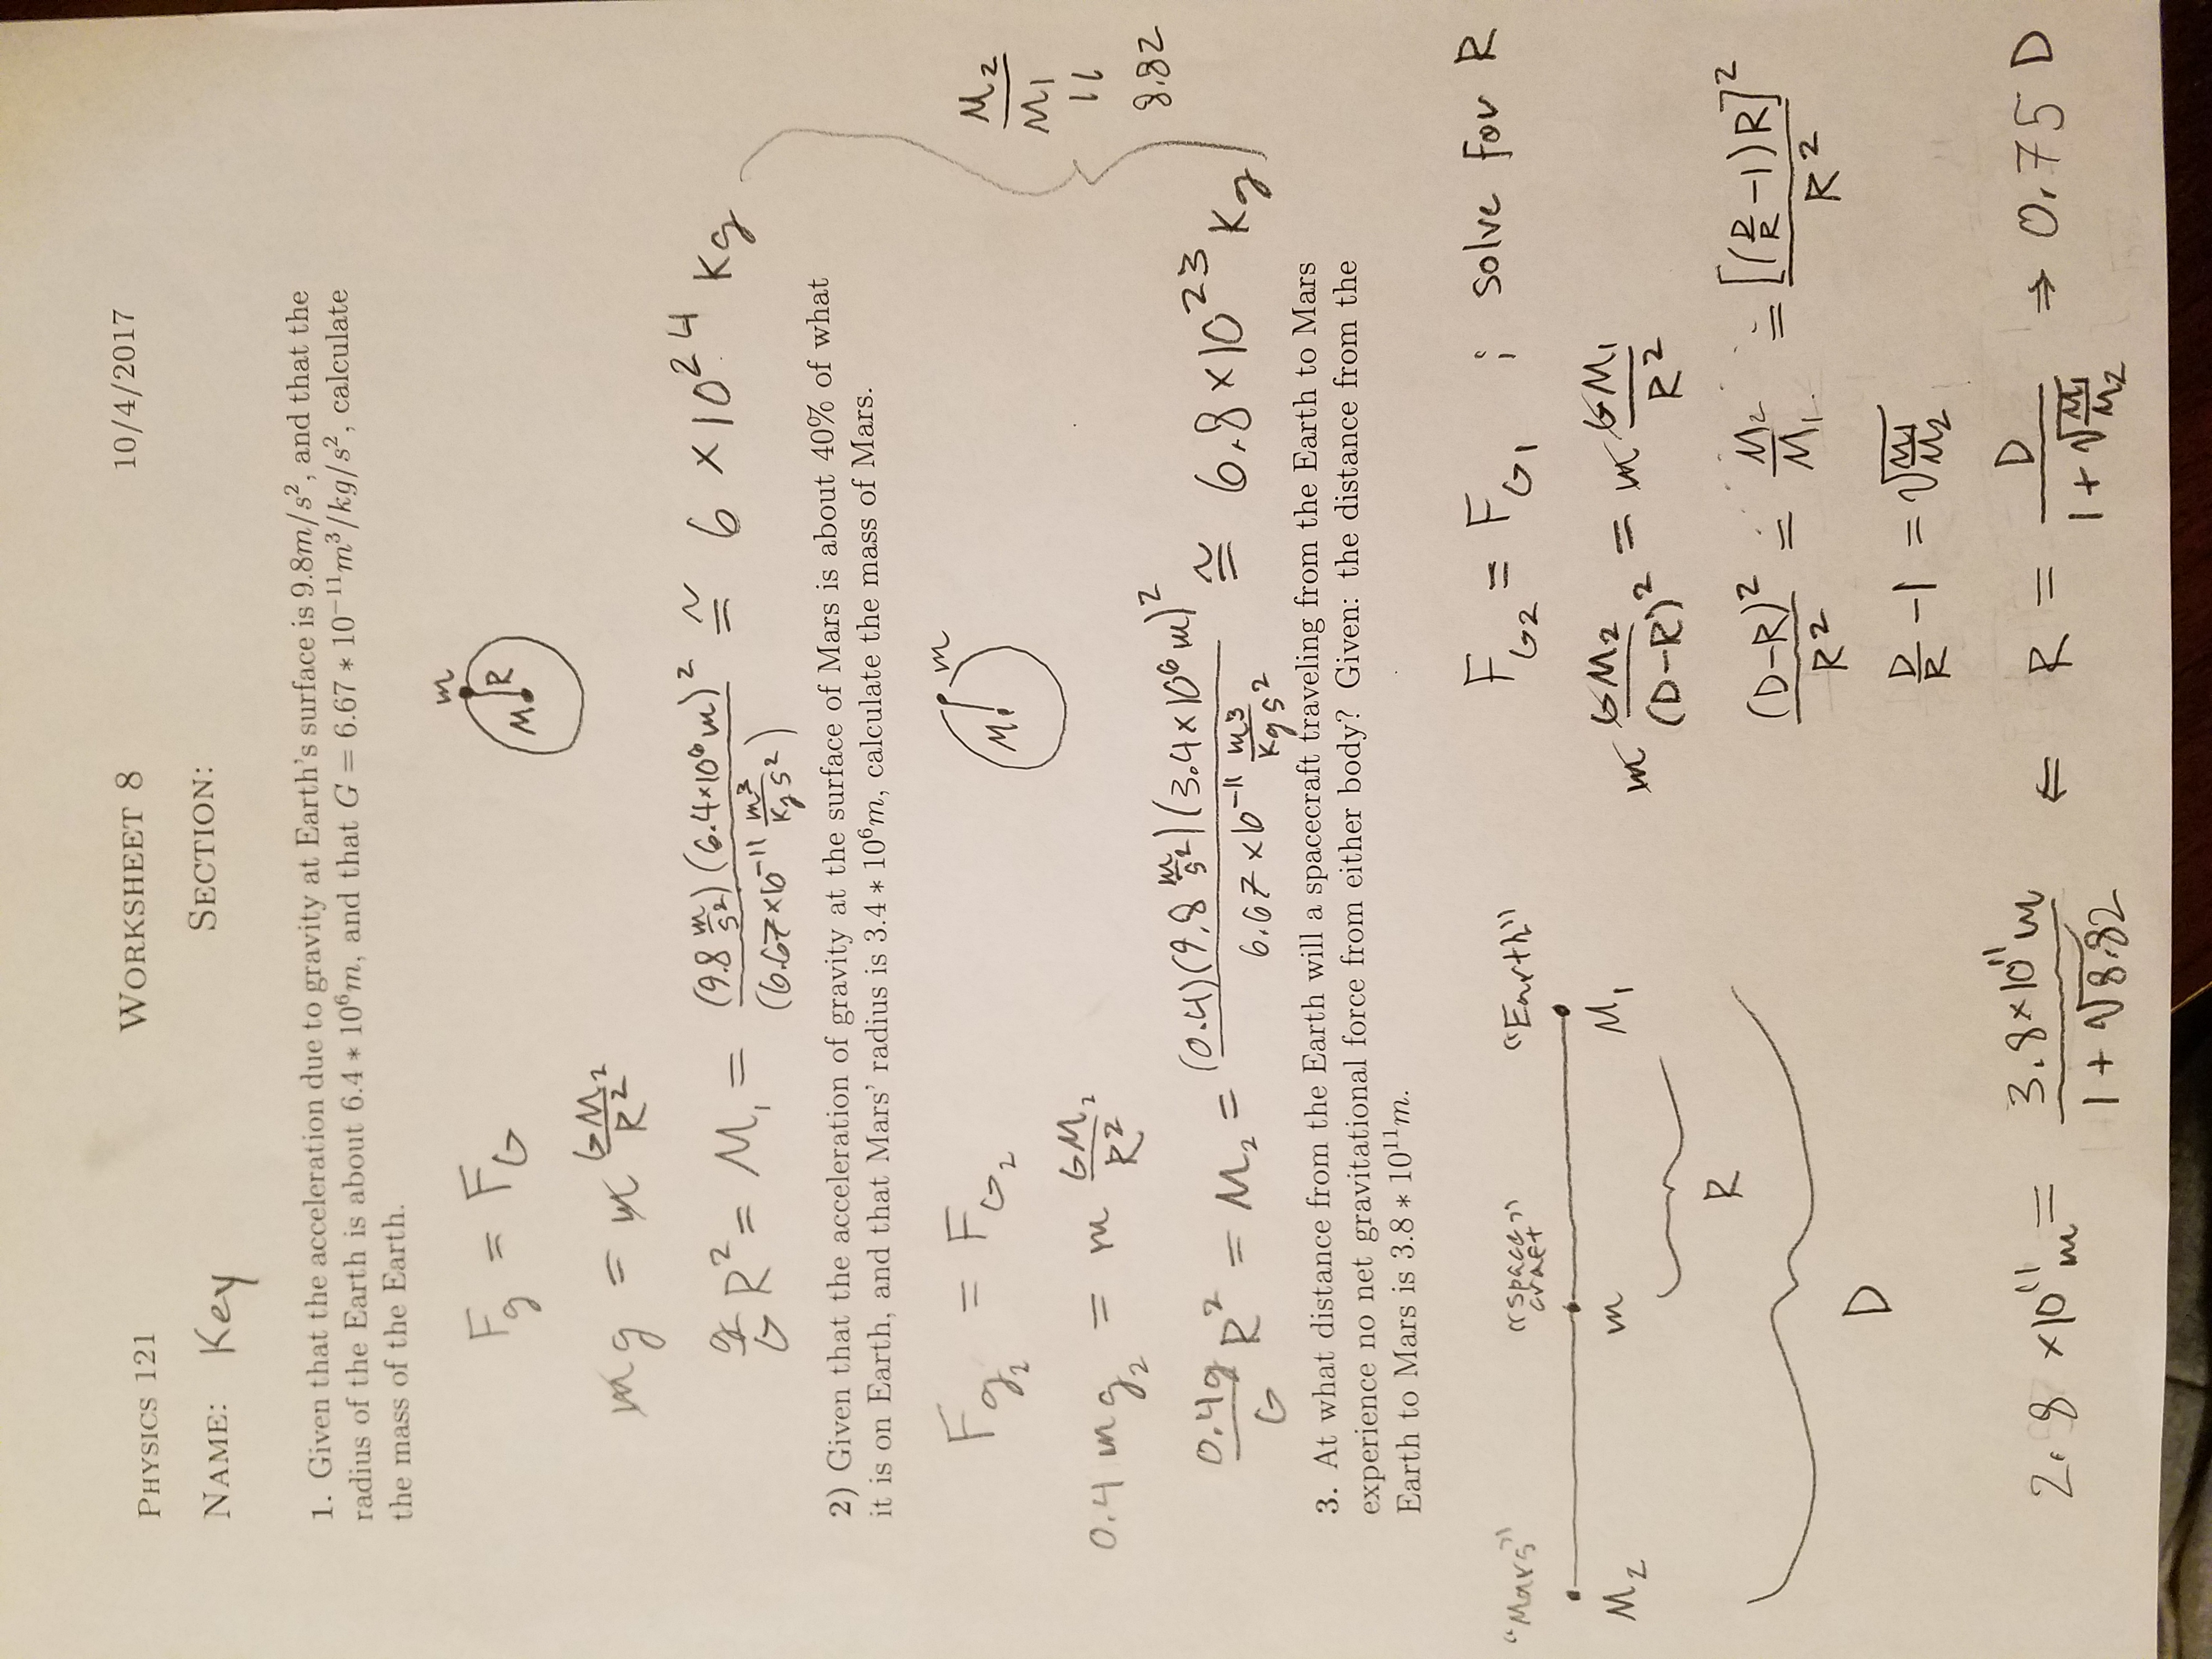 PHYSICS 121 WORKSHEET 8 10/4/2017
NAME: Key SECTION:
1. Given that the acceleration due to gravity at Earth's surface is 9.8m/s², and that the
radius of the Earth is about 6.4 * 10⁶m, and that G = 6.67 * 10⁻¹¹m³/kg/s², calculate
the mass of the Earth.
m
R
M
F_g = F_G
mg = m GM₂/R²
g/G R² = M₁ = (9.8 m/s²)(6.4×10⁶ m)²/(6.67×10⁻¹¹ m³/Kg s²) ≅ 6 × 10²⁴ Kg
2) Given that the acceleration of gravity at the surface of Mars is about 40% of what
it is on Earth, and that Mars' radius is 3.4 * 10⁶m, calculate the mass of Mars.
m
M
F_g₂ = F_G₂
0.4 mg₂ = m GM₂/R²
M₂/M₁
11
8.82
0.4g/G R² = M₂ = (0.4)(9.8 m/s²)(3.4×10⁶ m)²/6.67×10⁻¹¹ m³/Kg s² ≅ 6.8×10²³ Kg
3. At what distance from the Earth will a spacecraft traveling from the Earth to Mars
experience no net gravitational force from either body? Given: the distance from the
Earth to Mars is 3.8 * 10¹¹m.
"Mars" "space craft" "Earth"
M₂ m M₁
R
D
F_G2 = F_G1 ; solve for R
m GM₂/(D-R)² = m GM₁/R²
(D-R)²/R² = M₂/M₁ = [(D/R -1)R]²/R²
D/R -1 = √M₁/M₂
2.8 ×10¹¹ m = 3.8×10¹¹ m/1+√8.82 ⇐ R = D/1+√M₁/M₂ ⇒ 0.75 D